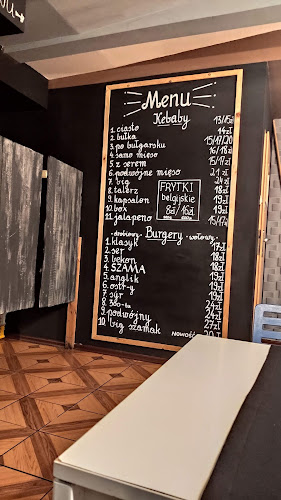 Menu
Kebaby
1. ciasto 13/15zł
2. bułka 14zł
3. po bułgarsku 15/17/20
4. samo mięso 16/18zł
5. z serem 15/17zł
6. podwójne mięso 21zł
7. big 24zł
8. talerz 18zł
9. kapsalon 19zł
10. box 19zł
11. jalapeno 15/17zł
FRYTKI
belgijskie
8zł/10zł
Burgery
- drobiowy - wołowy -
1. klasyk 17zł
2. ser 18zł
3. bekon 19zł
4. SZAMA 19zł
5. anglik
6. ostr-y
7. syr
8. 500-ka 24zł
9. podwójny 27zł
10. big szamak
Nowość 20zł